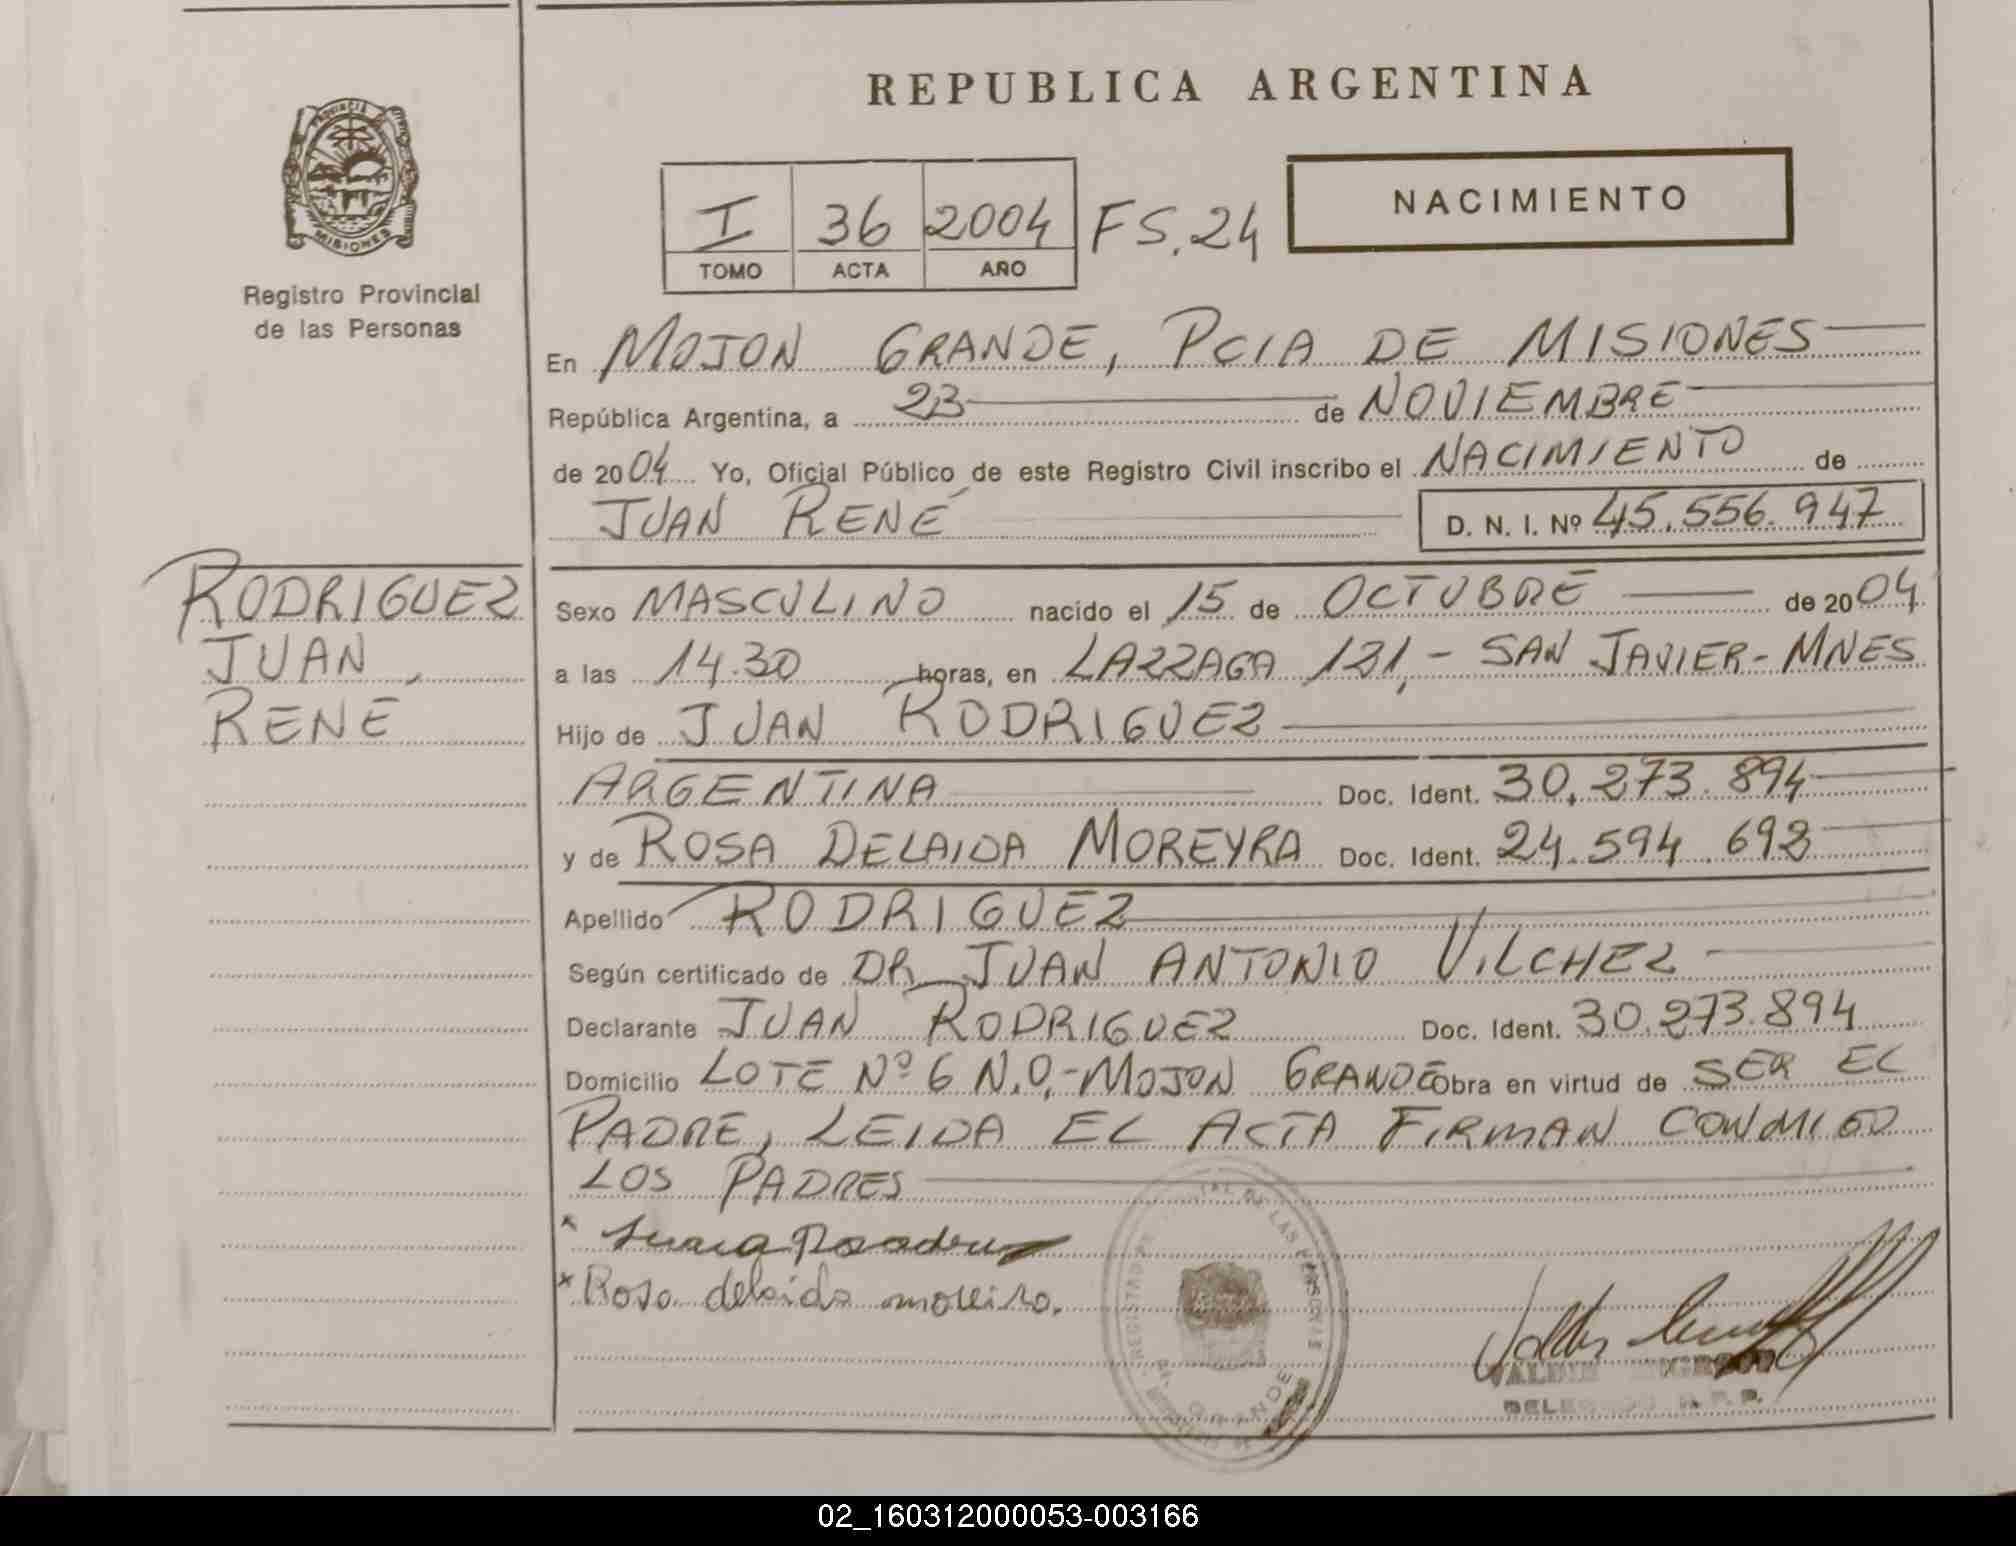 REPUBLICA ARGENTINA
PROVINCIA DE
MISIONES
Registro Provincial
de las Personas
I 36 2004 FS.24
TOMO ACTA AÑO
NACIMIENTO
En MOJON GRANDE, PCIA DE MISIONES
República Argentina, a 23 de NOVIEMBRE
de 2004 Yo, Oficial Público de este Registro Civil inscribo el NACIMIENTO de
JUAN RENÉ D. N. I. Nº 45.556.947
RODRIGUEZ
JUAN
RENE
Sexo MASCULINO nacido el 15 de OCTUBRE de 2004
a las 14.30 horas, en LAZZAGA 131,- SAN JAVIER-MNES
Hijo de JUAN RODRIGUEZ
ARGENTINA Doc. Ident. 30.273.894
y de ROSA DELAIDA MOREYRA Doc. Ident. 24.594.698
Apellido RODRIGUEZ
Según certificado de DR JUAN ANTONIO VILCHEZ
Declarante JUAN RODRIGUEZ Doc. Ident. 30.273.894
Domicilio LOTE Nº 6 N.O,-MOJON GRANDE Cobra en virtud de SER EL
PADRE, LEIDA EL ACTA FIRMAN CONMIGO
LOS PADRES
x
x Rosa delaida moreira.
DE LAS PERSONAS
GRANDE
R. P. P.
02_160312000053-003166